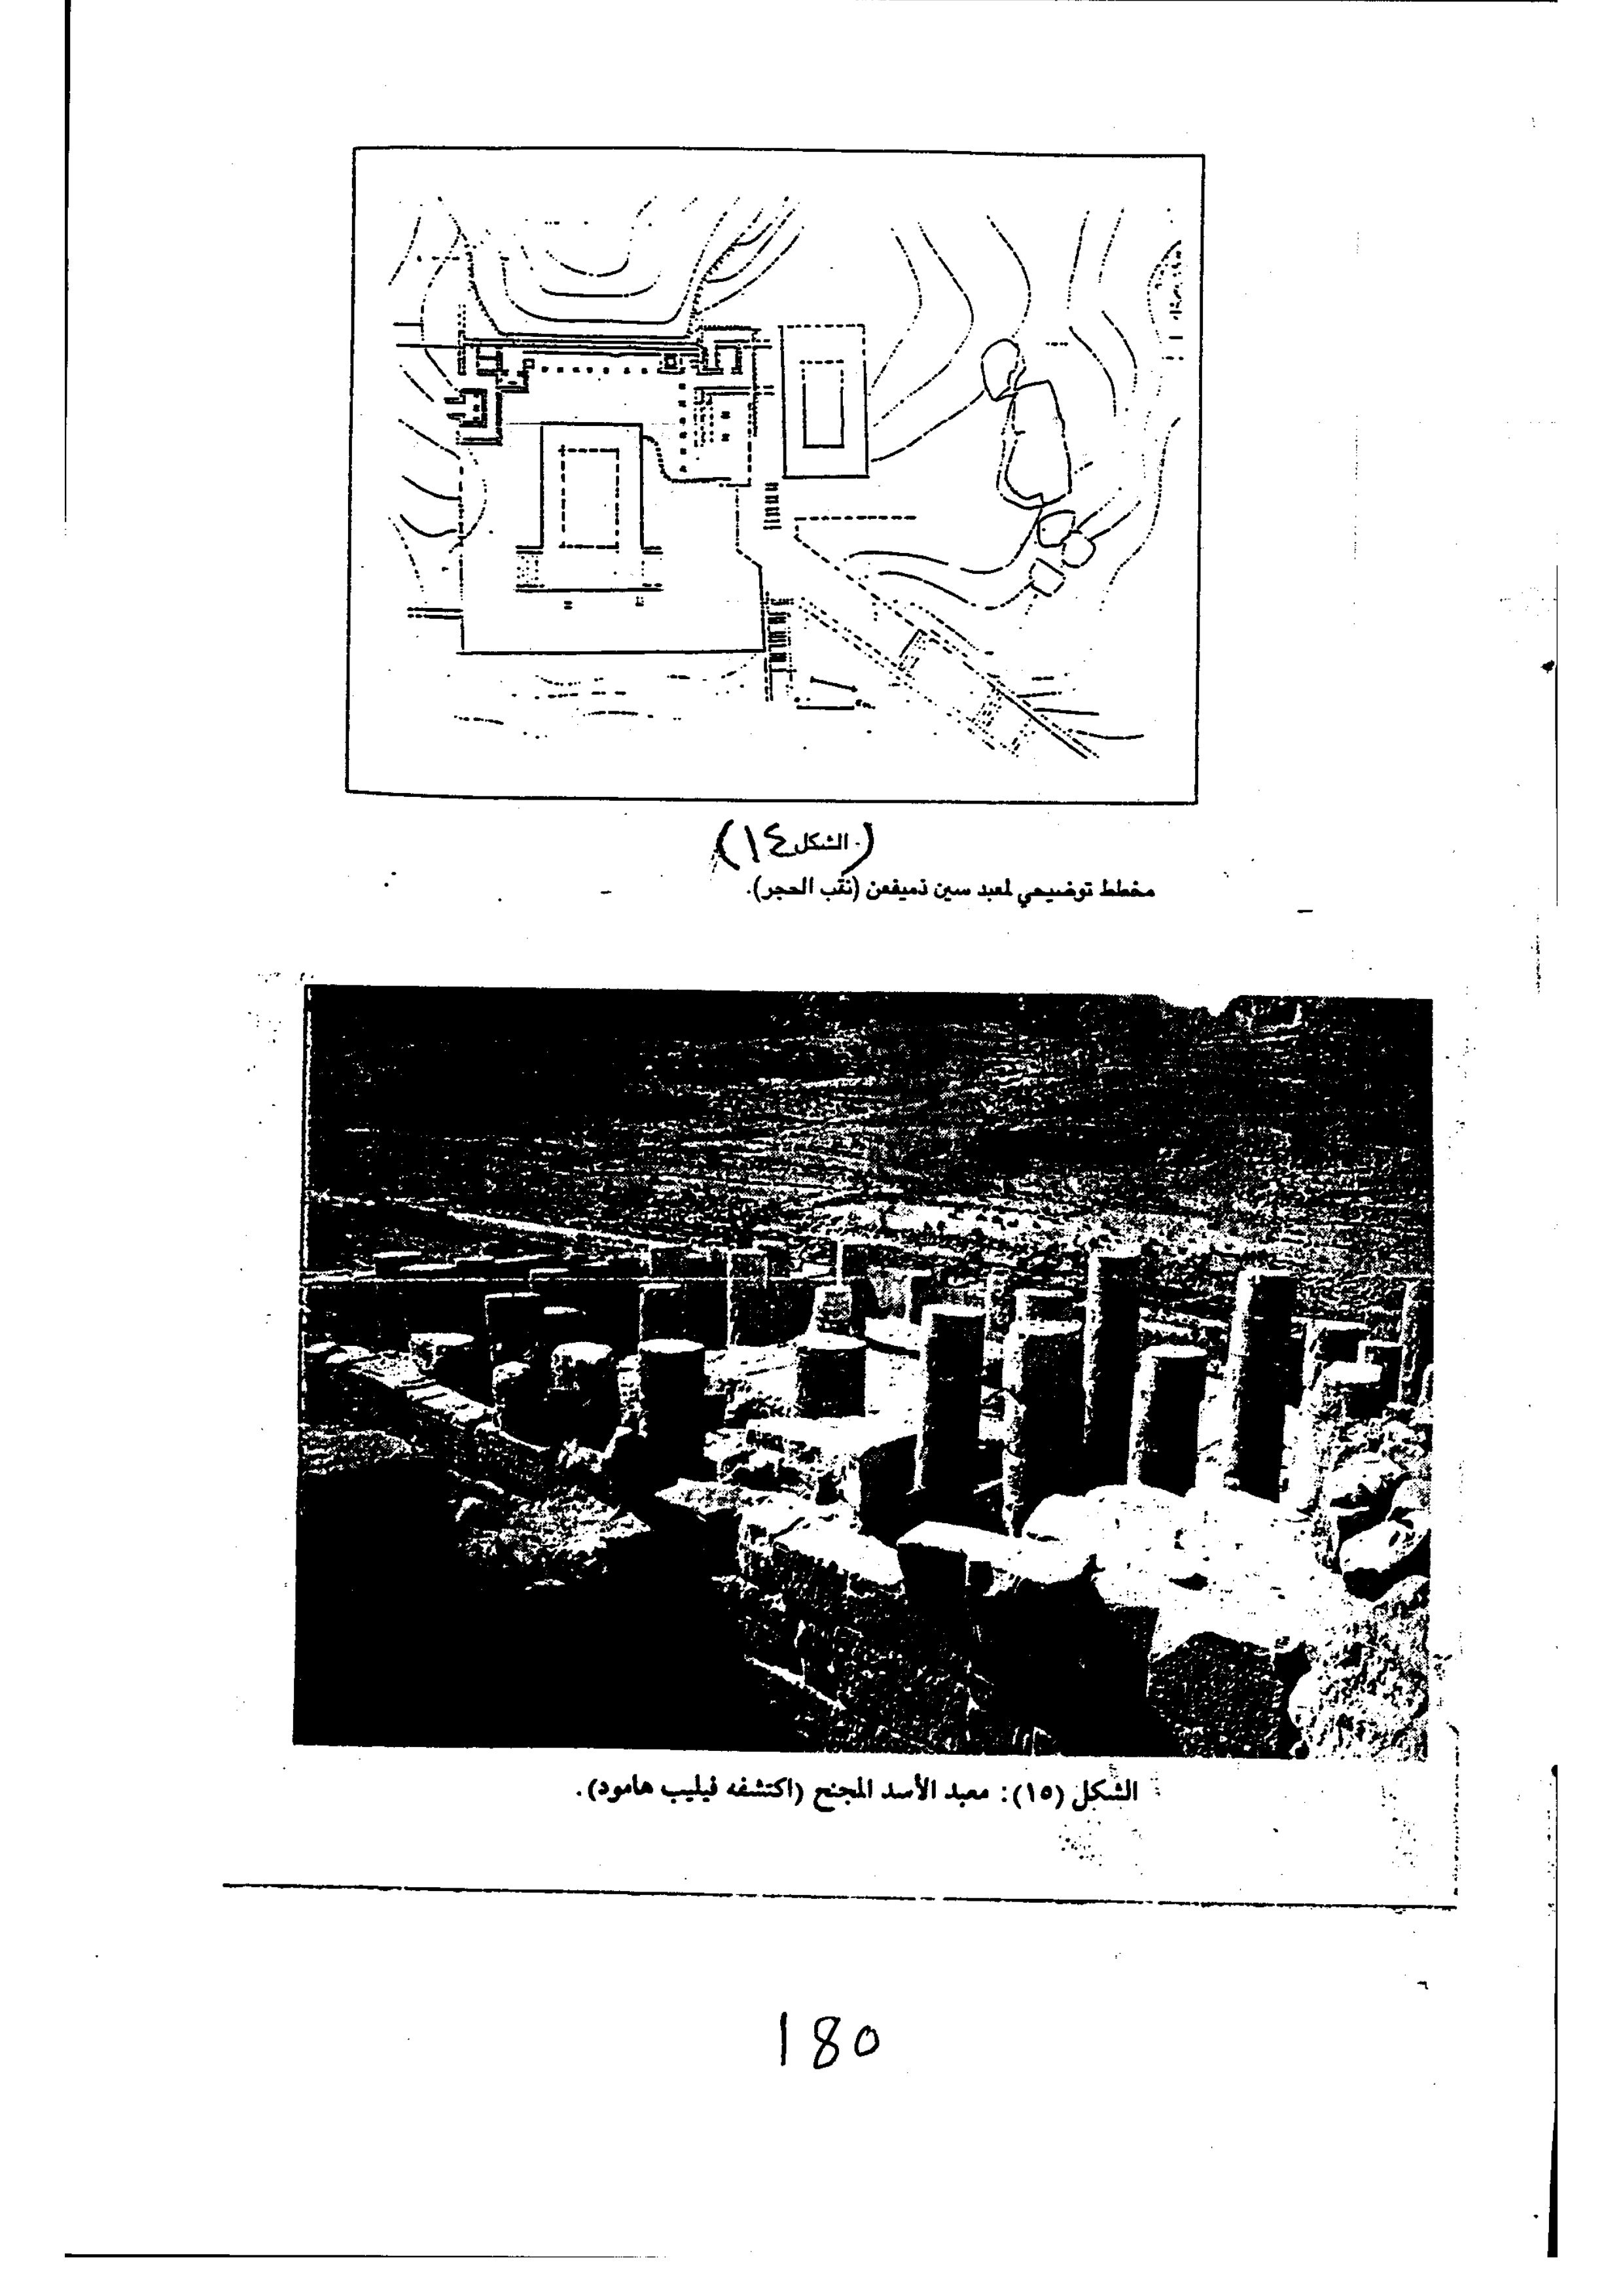 (الشكل ١٤)
مخطط توضيحي لمعبد سين ذميفعن (نقب الحجر).
الشكل (١٥): معبد الأسد المجنح (اكتشفه فيليب هامود).
180